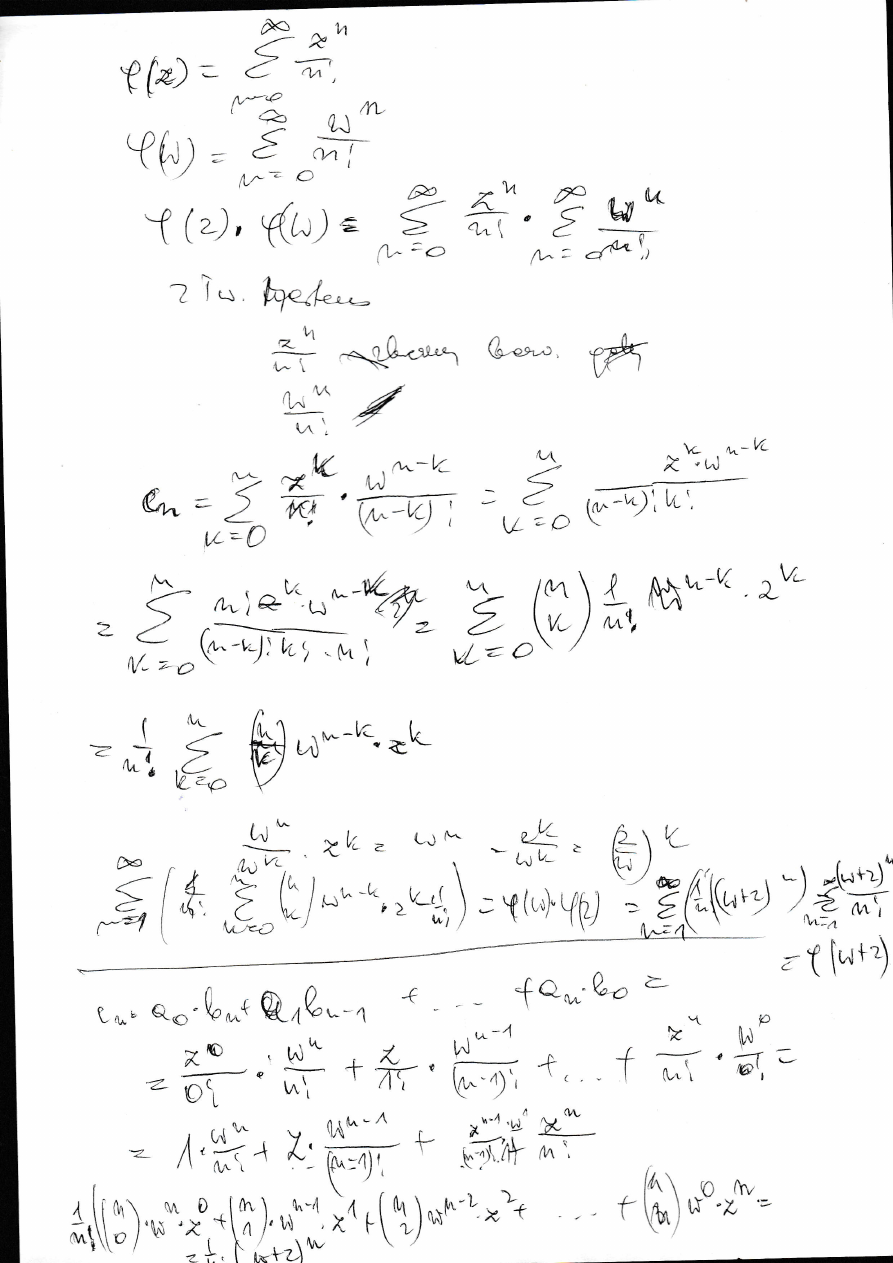 φ(z) = ∑_{n=0}^{∞} z^n/n!
φ(w) = ∑_{n=0}^{∞} w^n/n!
φ(z) · φ(w) = ∑_{n=0}^{∞} z^n/n! · ∑_{n=0}^{∞} w^n/n!
z Tw. Mertens
z^n/n! bezw.
w^n/n!
c_n = ∑_{k=0}^{n} z^k/k! · w^{n-k}/(n-k)! = ∑_{k=0}^{n} z^k·w^{n-k}/(n-k)!k!
= ∑_{k=0}^{n} n! z^k·w^{n-k}/(n-k)!k!·n! = ∑_{k=0}^{n} (n k) 1/n! w^{n-k} · z^k
= 1/n! ∑_{k=0}^{n} (n k) w^{n-k} · z^k
w^n/w^k · z^k = w^n - z^k/w^k = (z/w)^k
∑_{n=1}^{∞} (1/n! ∑_{k=0}^{n} (n k) w^{n-k} · z^k 1/n!) = φ(w)·φ(z) = ∑_{n=1}^{∞} (1/n! (w+z)^n) ∑_{n=1}^{∞} (w+z)^n/n!
= φ(w+z)
c_n = a_0·b_n + a_1 b_{n-1} + .... + a_n·b_0 =
= z^0/0! · w^n/n! + z/1! · w^{n-1}/(n-1)! + ... + z^n/n! · w^0/0! =
= 1· w^n/n! + z · w^{n-1}/(n-1)! + z^{n-1}·w^1/(n-1)!·1! z^n/n!
1/n! ((n 0)·w^n·z^0 + (n 1)·w^{n-1}·z^1 + (n 2) w^{n-2}·z^2 + .... + (n n) w^0·z^n =
= 1/n! · (w+z)^n